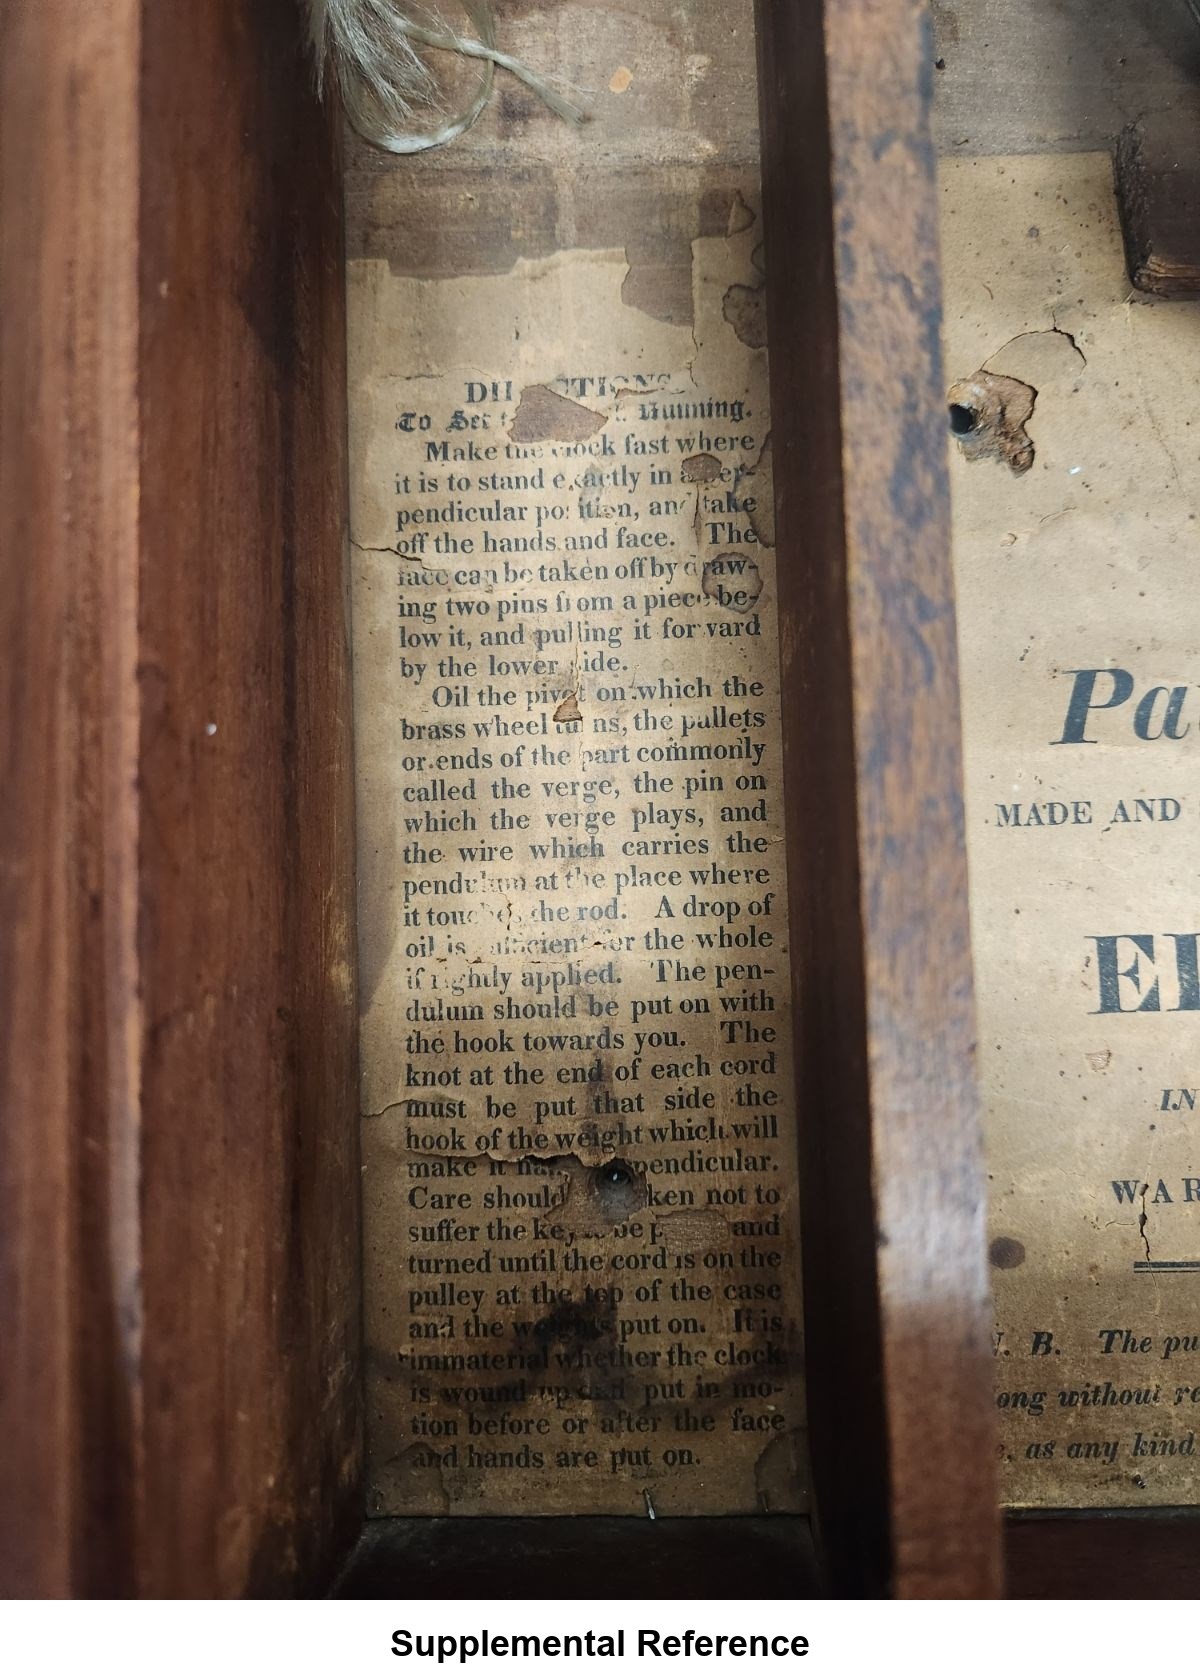 DIRECTIONS
To Set Running.
Make the clock fast where
it is to stand exactly in a per-
pendicular position, and take
off the hands and face. The
face can be taken off by draw-
ing two pins from a piece be-
low it, and pulling it forward
by the lower side.
Oil the pivot on which the
brass wheel turns, the pallets
or ends of the part commonly
called the verge, the pin on
which the verge plays, and
the wire which carries the
pendulum at the place where
it touches the rod. A drop of
oil is sufficient for the whole
if rightly applied. The pen-
dulum should be put on with
the hook towards you. The
knot at the end of each cord
must be put that side the
hook of the weight which will
make it perpendicular.
Care should taken not to
suffer the key be and
turned until the cord is on the
pulley at the top of the case
and the weights put on. It is
immaterial whether the clock
is wound up and put in mo-
tion before or after the face
and hands are put on.
Pa
MADE AND
EL
IN
WAR
N. B. The pu
ong without re
as any kind
Supplemental Reference